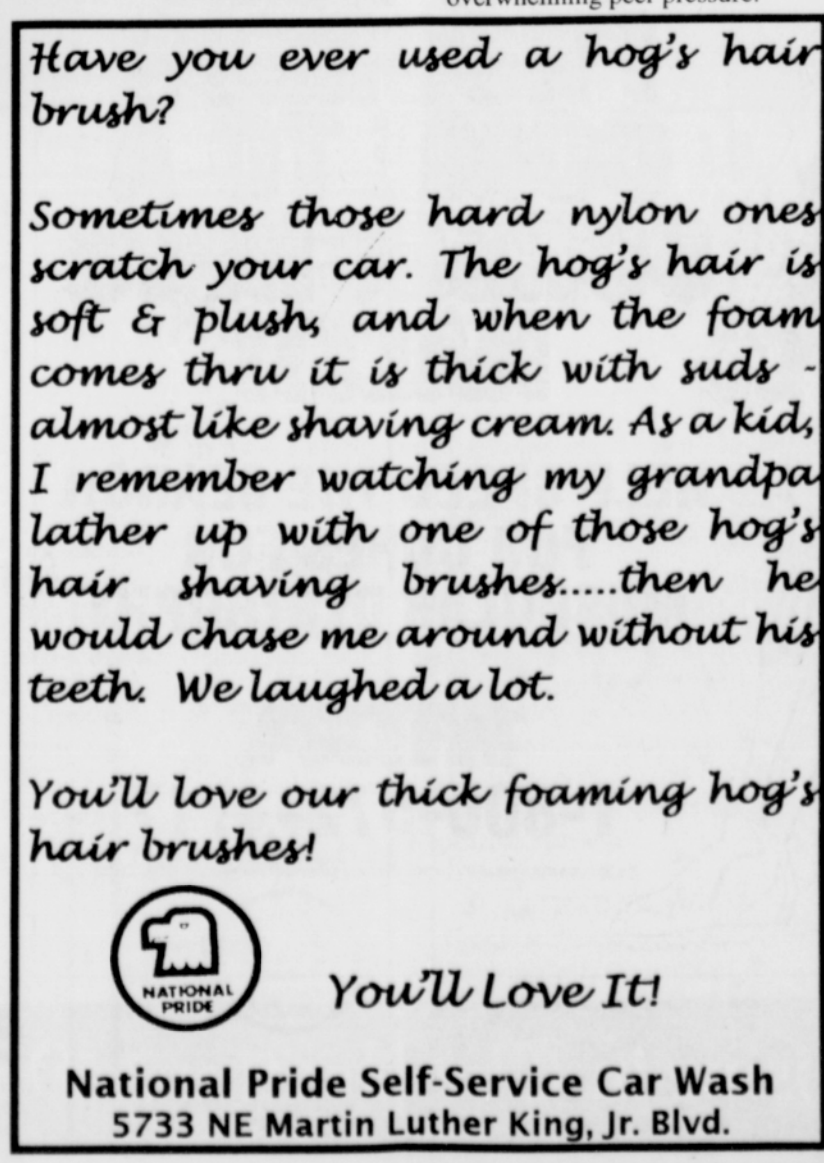 overwhelming peer pressure.
Have you ever used a hog's hair
brush?
Sometimes those hard nylon ones
scratch your car. The hog's hair is
soft & plush, and when the foam
comes thru it is thick with suds -
almost like shaving cream. As a kid,
I remember watching my grandpa
lather up with one of those hog's
hair shaving brushes.....then he
would chase me around without his
teeth. We laughed a lot.
You'll love our thick foaming hog's
hair brushes!
NATIONAL
PRIDE
You'll Love It!
National Pride Self-Service Car Wash
5733 NE Martin Luther King, Jr. Blvd.